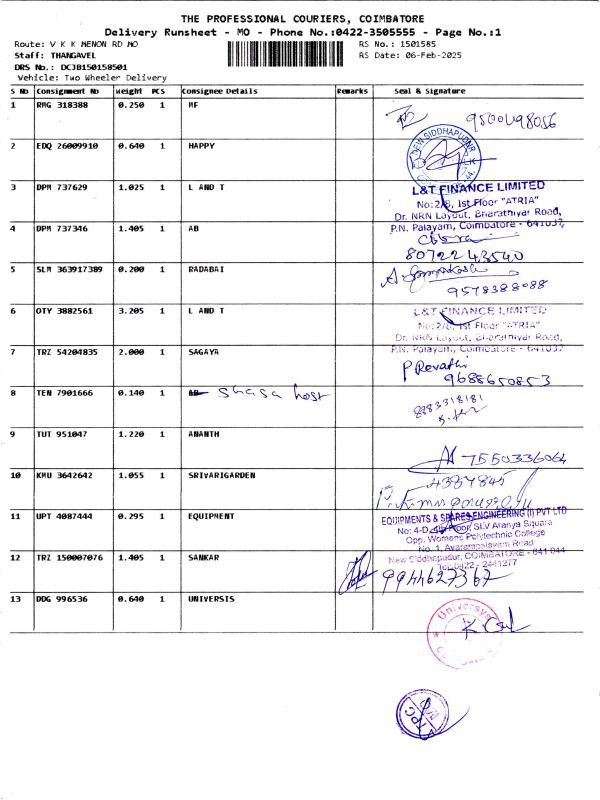 THE PROFESSIONAL COURIERS, COIMBATORE
Delivery Runsheet - MO - Phone No.:0422-3505555 - Page No.:1
Route: V K K MENON RD MO RS No.: 1501585
Staff: THANGAVEL RS Date: 06-Feb-2025
DRS No.: DCJB150158501
Vehicle: Two Wheeler Delivery
S No Consignment No Weight PCS Consignee Details Remarks Seal & Signature
1 RMG 318388 0.250 1 MF
2 EDQ 26009910 0.640 1 HAPPY
3 DPM 737629 1.025 1 L AND T L&T FINANCE LIMITED
No:2/8, Ist Floor "ATRIA"
Dr. NRN Layout, Bharathiyar Road,
P.N. Palayam, Coimbatore - 641037
4 DPM 737346 1.405 1 AB
8072243540
5 SLM 363917389 0.200 1 RADABAI
9578388088
6 OTY 3882561 3.205 1 L AND T L&T FINANCE LIMITED
No:2/8, Ist Floor "ATRIA"
Dr. NRN Layout, Bharathiyar Road,
P.N. Palayam, Coimbatore - 641037
7 TRZ 54204835 2.000 1 SAGAYA P Revathi
9688650853
8 TEN 7901666 0.140 1 AB shasa host 8983318181
9 TUT 951047 1.220 1 ANANTH 7550336064
10 KMU 3642642 1.055 1 SRIVARIGARDEN 4387845
11 UPT 4087444 0.295 1 EQUIPMENT EQUIPMENTS & SPARES ENGINEERING (I) PVT LTD
No: 4-D, Floor, SLV Aranya Square
Opp. Womens Polytechnic College
No. 1, Avarampalayam Road
New Siddhapudur, COIMBATORE - 641 044
Tel: 0422 - 2441277
12 TRZ 150007076 1.405 1 SANKAR 9944627367
13 DDG 996536 0.640 1 UNIVERSIS
TPC